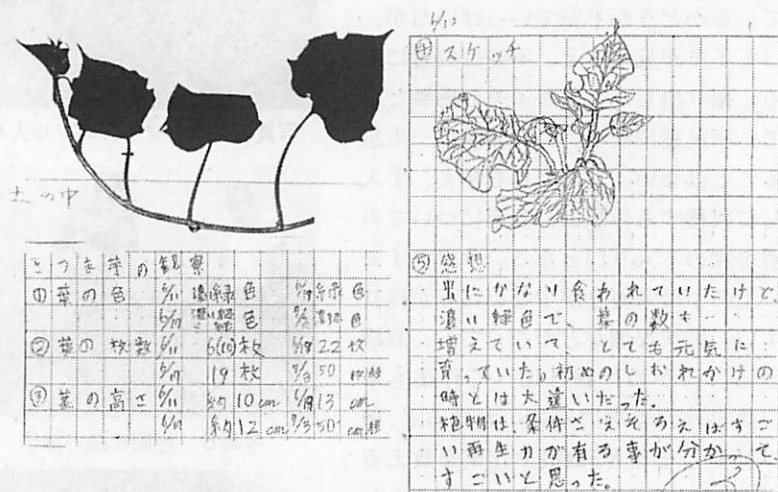 土の中
さつま芋の観察
①葉の色 6/11 濃緑色 6/19 緑色
6/17 濃い緑色 濃緑色
②葉の枚数 6/11 6(10)枚 6/19 22枚
6/17 19枚 50枚
③葉の高さ 6/11 約10cm 6/19 13cm
6/17 約12cm 50cm
6/17
④スケッチ
⑤感想
虫にかなり食われていたけど
濃い緑色で、葉の数も
増えていて、とても元気に
育っていた。初めのしおれかけの
時とは大違いだった。
植物は、条件さえそろえばすご
い再生力が有る事が分かって、
すごいと思った。